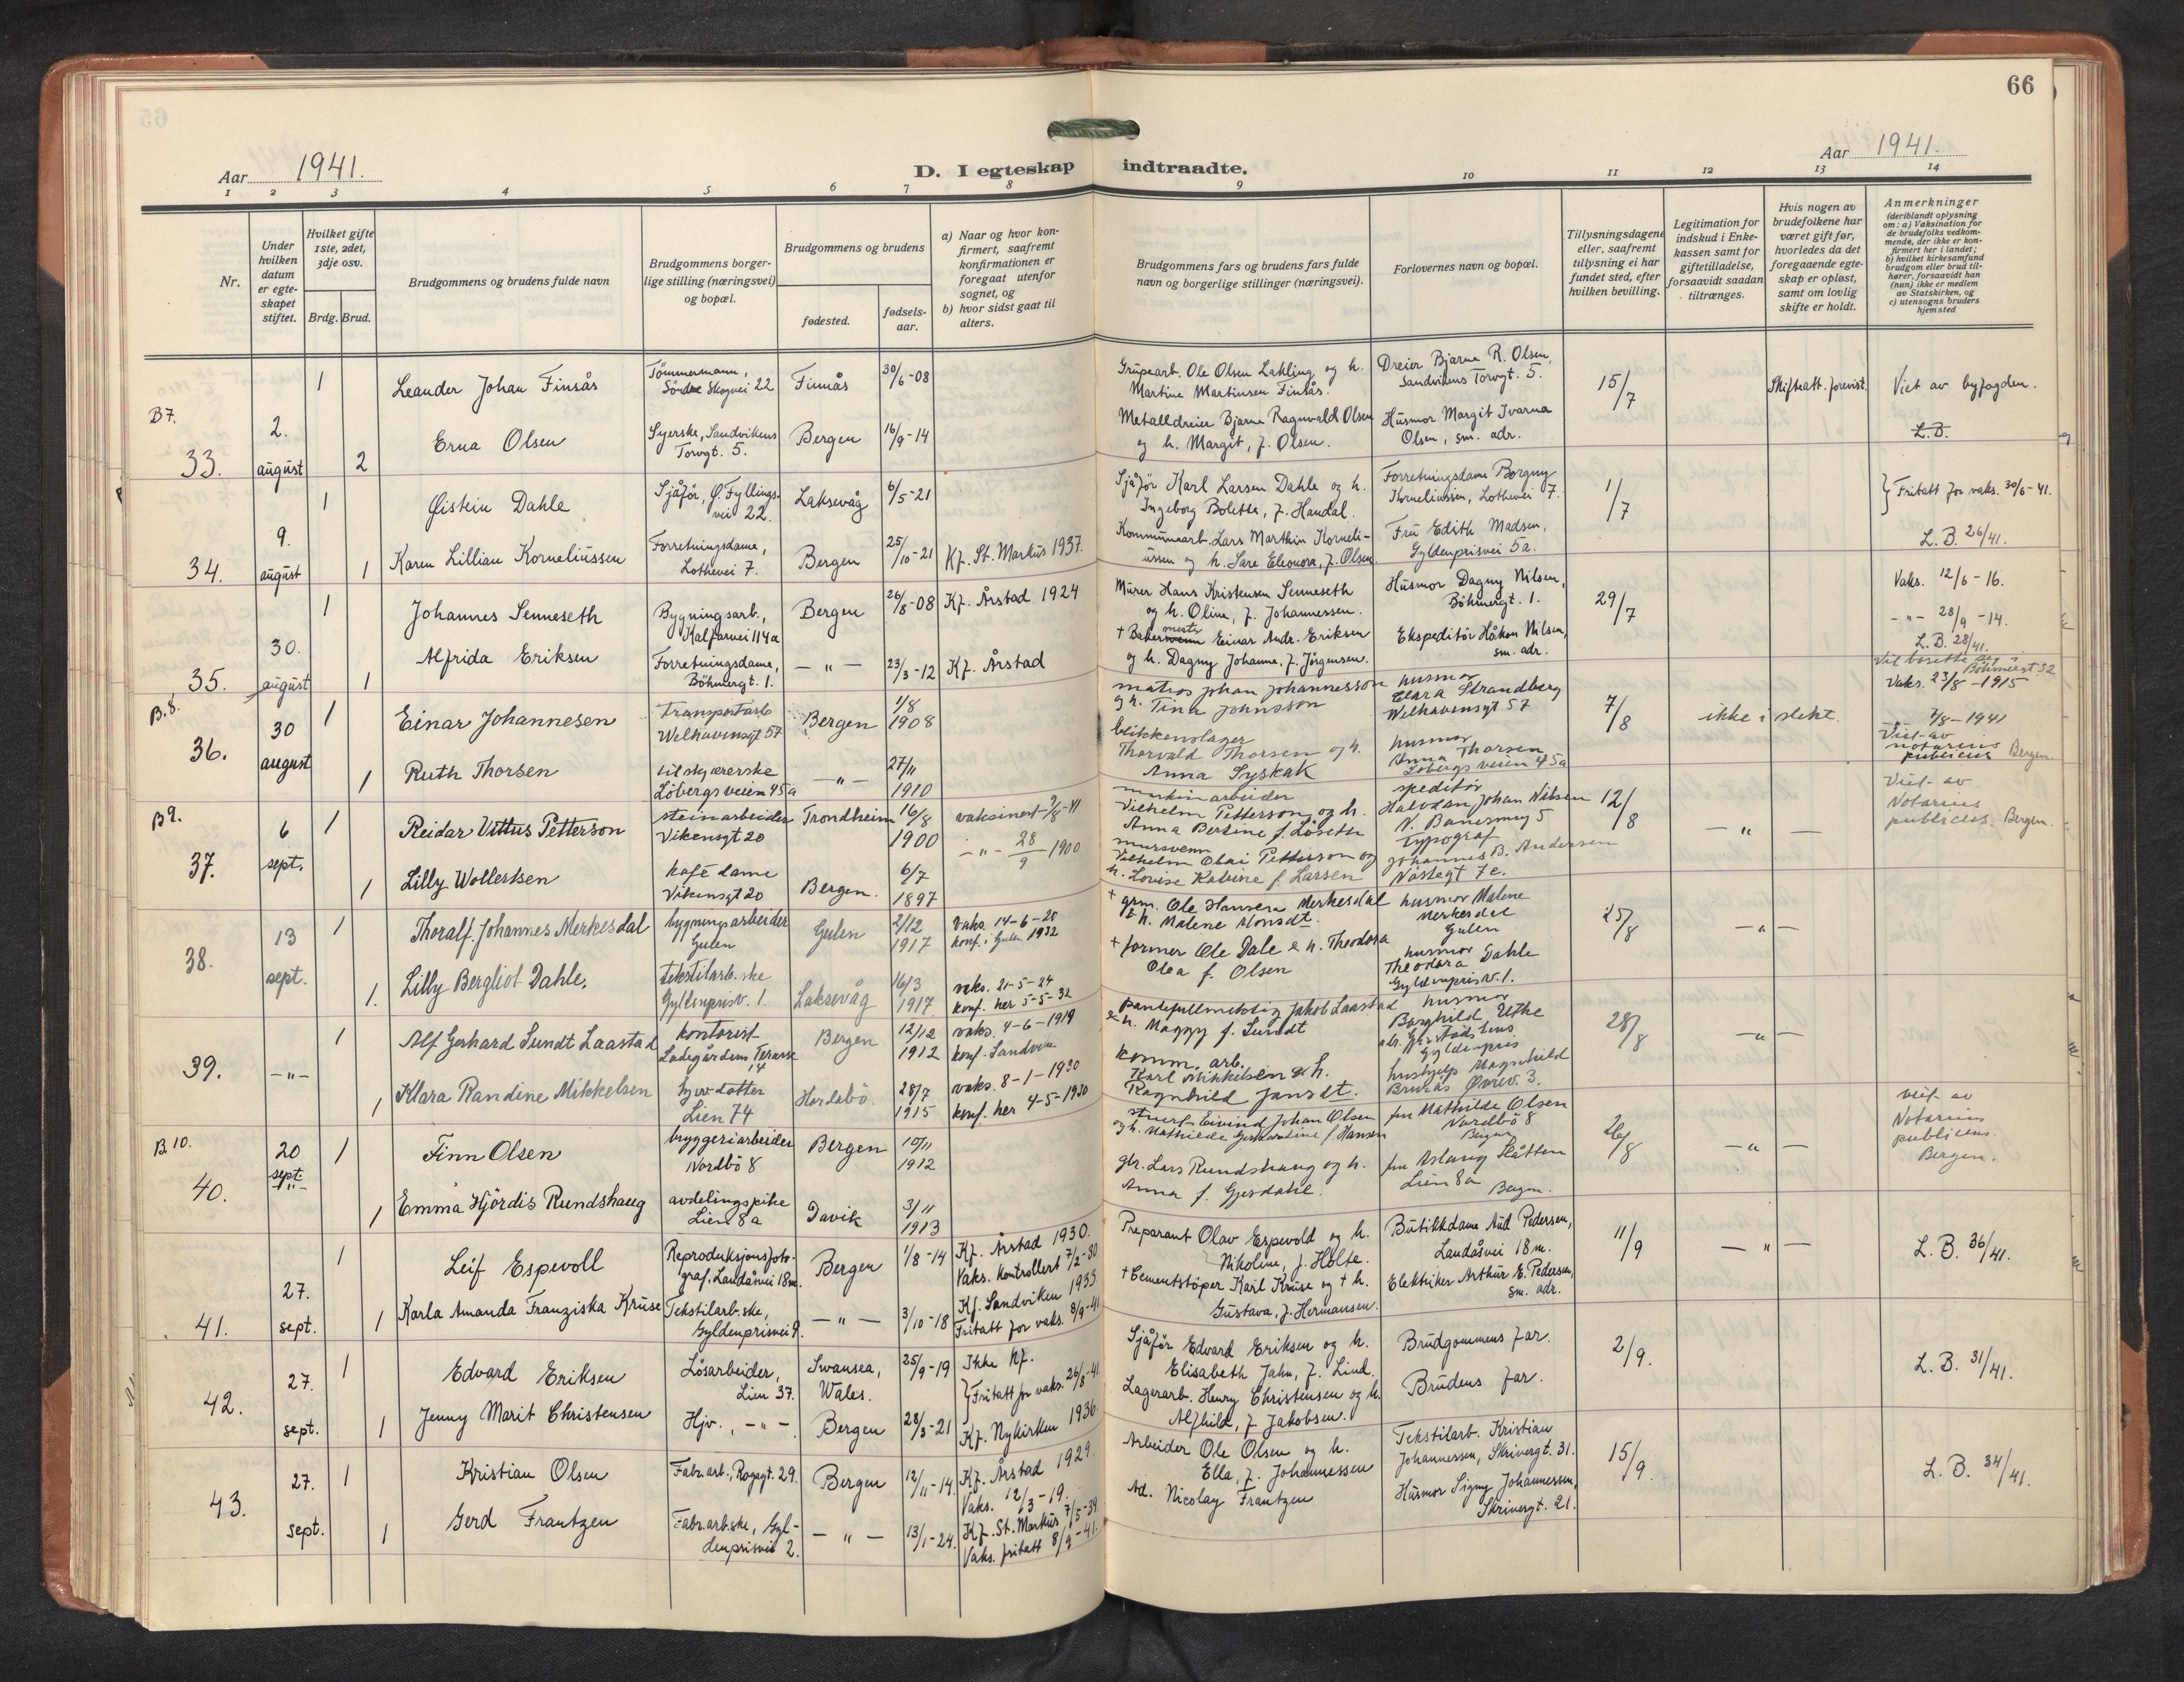 66
Aar 1941.
D. I egteskap indtraadte.
Aar 1941.
1 2 3 4 5 6 7 8 9 10 11 12 13 14
Nr.
Under hvilken datum er egteskapet stiftet.
Hvilket gifte 1ste, 2det, 3dje osv.
Brdg. Brud.
Brudgommens og brudens fulde navn
Brudgommens borgerlige stilling (næringsvei) og bopæl.
Brudgommens og brudens
fødested.
fødselsaar.
a) Naar og hvor konfirmert, saafremt konfirmationen er foregaat utenfor sognet, og
b) hvor sidst gaat til alters.
Brudgommens fars og brudens fars fulde navn og borgerlige stillinger (næringsvei).
Forlovernes navn og bopæl.
Tillysningsdagene eller, saafremt tillysning ei har fundet sted, efter hvilken bevilling.
Legitimation for indskud i Enkekassen samt for giftetilladelse, forsaavidt saadan tiltrænges.
Hvis nogen av brudefolkene har været gift før, hvorledes da det foregaaende egteskap er opløst, samt om lovlig skifte er holdt.
Anmerkninger
(deriblandt oplysning om: a) Vaksination for de brudefolks vedkommende, der ikke er konfirmert her i landet; b) hvilket kirkesamfund brudgom eller brud tilhører, forsaavidt han (hun) ikke er medlem av Statskirken, og c) utensogns bruders hjemsted
B 7.
33. 2. august
1 Leander Johan Finsås Tömmermann, Söndre Skogvei 22 Finnås 30/6-08
Grupearb. Ole Olsen Lakling og h. Martine Martinsen Finsås.
Dreier Bjarne R. Olsen, Sandvikens Torvgt. 5.
15/7 Skifteatt. forevist. Viet av byfogden.
2 Erna Olsen Syerske, Sandvikens Torvgt. 5. Bergen 16/9-14
Metalldreier Bjarne Ragnvald Olsen og h. Margit, f. Olsen.
Husmor Margit Ivarna Olsen, sm. adr.
L.B.
34. 9. august
1 Øistein Dahle Sjåför, Ø. Fyllingsvei 22. Laksevåg 6/5-21
Sjåför Karl Larsen Dahle og h. Ingeborg Bolette, f. Haudal.
Forretningsdame Borgny Korneliussen, Lothevei 7.
1/7 Fritatt for vaks. 30/6-41.
1 Karen Lillian Korneliussen Forretningsdame, Lothevei 7. Bergen 25/10-21 Kf. St. Markus 1937.
Kommunearb. Lars Marthin Korneliussen og h. Sare Eleonora, f. Olsen.
Fru Edith Madsen, Gyldenprisvei 5a.
L.B. 26/41.
35. 30. august
1 Johannes Senneseth Bygningsarb., Kalfarvei 114a Bergen 26/8-08 Kf. Årstad 1924
Murer Hans Kristensen Senneseth og h. Oline, f. Johannessen.
Husmor Dagny Nilsen, Böhmergt. 1.
29/7 Vaks. 12/6-16.
1 Alfrida Eriksen Forretningsdame, Böhmergt. 1. — " — 23/3-12 Kf. Årstad
† Bakermester Einar Andr. Eriksen og h. Dagny Johanne, f. Jörgensen.
Ekspeditör Håkon Nilsen, sm. adr.
- " - 28/9-14.
L.B. 28/41.
B. 8.
36. 30 august
1 Einar Johannesen transportarb Welhavensgt 57 Bergen 1/8 1908
matros Johan Johannesson og h. Tina Johnsson
husmor Clara Strandberg Welhavensgt 57
7/8 ikke i slekt.
Vil bosette seg i Böhmergt 32
Vaks. 23/8-1915
1 Ruth Thorsen tilskjærerske Löbergsveien 45a — " — 27/11 1910
blikkenslager Thorvald Thorsen og h. Anna Syskak
husmor Anna Thorsen Löbergsveien 45a
— " — 7/8-1941
Viet av notarius publicus Bergen.
B 9.
37. 6 sept.
1 Reidar Vittus Petterson steinarbeider Vikensgt 20 Trondheim 16/8 1900 vaksinert 9/8-41
Vilhelm Petterson og h. Anna Bertine f. Löseth
speditör Halvdan Johan Nilsen N. Banesmug 5
12/8 — " — Viet av Notarius publicus Bergen.
1 Lilly Wollertsen kafé dame Vikensgt 20 Bergen. 6/7 1897 — " — 28/9 1900
mursvenn Vilhelm Olai Petterson og h. Lovise Katrine f. Larsen
Typograf Johannes B. Andersen Nöstegt 7e.
38. 13 sept.
1 Thoralf Johannes Merkesdal bygningsarbeider Gulen Gulen 2/12 1917 Vaks. 14-6-20 konf. i Gulen 1932
† grm. Ole Hansen Merkesdal & h. Malene Monsdt.
husmor Malene Merkesdal Gulen
25/8 — " —
1. Lilly Bergliot Dahle. tekstilarb.ske Gyldenprisv. 1. Laksevåg 16/3 1917 vaks. 21-5-24 konf. her 5-5-32
† former Ole Dale & h. Theodora Olea f. Olsen
husmor Theodora Dahle Gyldenprisv. 1.
39. — " —
1 Alf Gerhard Sundt Laastad kontorist Ladegårdens Terasse 14 Bergen 12/12 1912 vaks. 4-6-1919 konf. Sandviken
pantefullmektig Jakob Laastad & h. Maggy f. Sundt
husmor Borghild Utke
Gyldenpris
28/8 — " —
1 Klara Randine Mikkelsen hjv. datter Lien 74 Herdabö. 28/7 1915 vaks. 8-1-1930 konf. her 4-5-1930
Komm. arb. Karl Mikkelsen & h. Ragnhild Jansdt.
hushjelp Magnhild Brurås Øvrev. 3.
B. 10.
40. 20 sept.
1 Finn Olsen bryggeriarbeider Nordbö 8 Bergen 10/11 1912
Eivind Johan Olsen og h. Mathilde Gerhardine f. Hansen
fru Mathilde Olsen Nordbö 8 Bergen
26/8 — " — viet av Notarius publicus. Bergen.
1 Emma Hjördis Rundshaug avdelingspike Lien 8a Davik 3/11 1913
gbr. Lars Rundshaug og h. Anna f. Gjerdahl.
fru Aslaug Slåtten Lien 8a Bergen.
41. 27. sept.
1 Leif Espevoll Reproduksjonsfotograf, Landåsvei 18m. Bergen 1/8-14 Kf. Årstad 1930. Vaks. kontrollert 7/2-30
Preparant Olav Espevold og h. Nikoline, f. Holte.
Butikkdame Aud Pedersen, Landåsvei 18m.
11/9 — " — L.B. 36/41.
1 Karla Amanda Franziska Kruse Tekstilarb.ske, Gyldenprisvei 9. — " — 3/10-18 Kf. Sandviken 1933 Fritatt for vaks. 8/9-41
† Cementstöper Karl Kruse og † h. Gustava, f. Hermansen.
Elektriker Arthur E. Pedersen, sm. adr.
42. 27. sept.
1 Edvard Eriksen Lösarbeider, Lien 37. Swansea, Wales. 25/9-19 Ikke kf.
Fritatt for vaks. 26/8-41
Sjåför Edvard Eriksen og h. Elisabeth Jahn, f. Lind.
Brudgommens far.
2/9. L.B. 31/41.
1 Jenny Marit Christensen Hjv., — " — Bergen 28/3-21 Kf. Nykirken 1936.
Lagerarb. Henry Christensen og h. Alfhild, f. Jakobsen.
Brudens far.
43. 27. sept.
1 Kristian Olsen Fabr.arb., Rogagt. 29. Bergen 12/11-14. Kf. Årstad 1929. Vaks. 12/3-19.
Arbeider Ole Olsen og h. Ella, f. Johannessen
Tekstilarb. Kristian Johannessen, Skrivergt. 31.
15/9. L.B. 34/41.
1 Gerd Frantzen Fabr.arb.ske, Gyldenprisvei 2. — " — 13/1-24. Kf. St. Markus 7/5-39. Vaks. fritatt 8/9-41.
Ad. Nicolay Frantzen
Husmor Signy Johannessen, Skrivergt. 21.